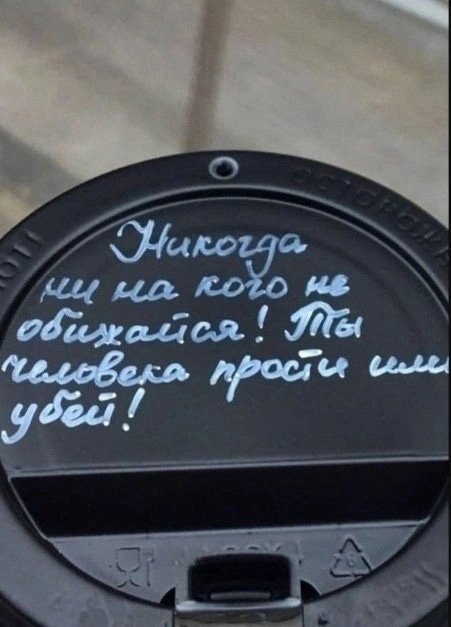 Никогда
ни на кого не
обижайся! Ты
человека прости или
убей!
HOT!
ОСТОРОЖН